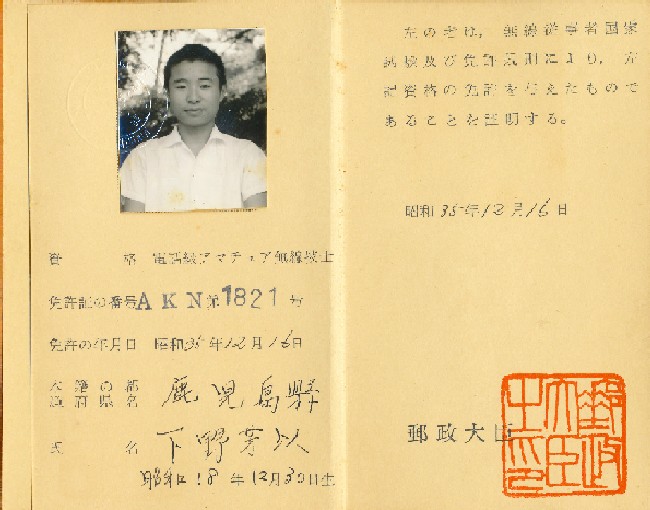 資格 電話級アマチュア無線技士
免許証の番号 AKN第1821号
免許の年月日 昭和35年12月16日
本籍の都道府県名 鹿児島県
氏名 下野芽以
昭和18年12月30日生
左の者は、無線従事者国家
試験及び免許規則により、左
記資格の免許を与えたもので
あることを証明する。
昭和35年12月16日
郵政大臣
郵政大臣之印